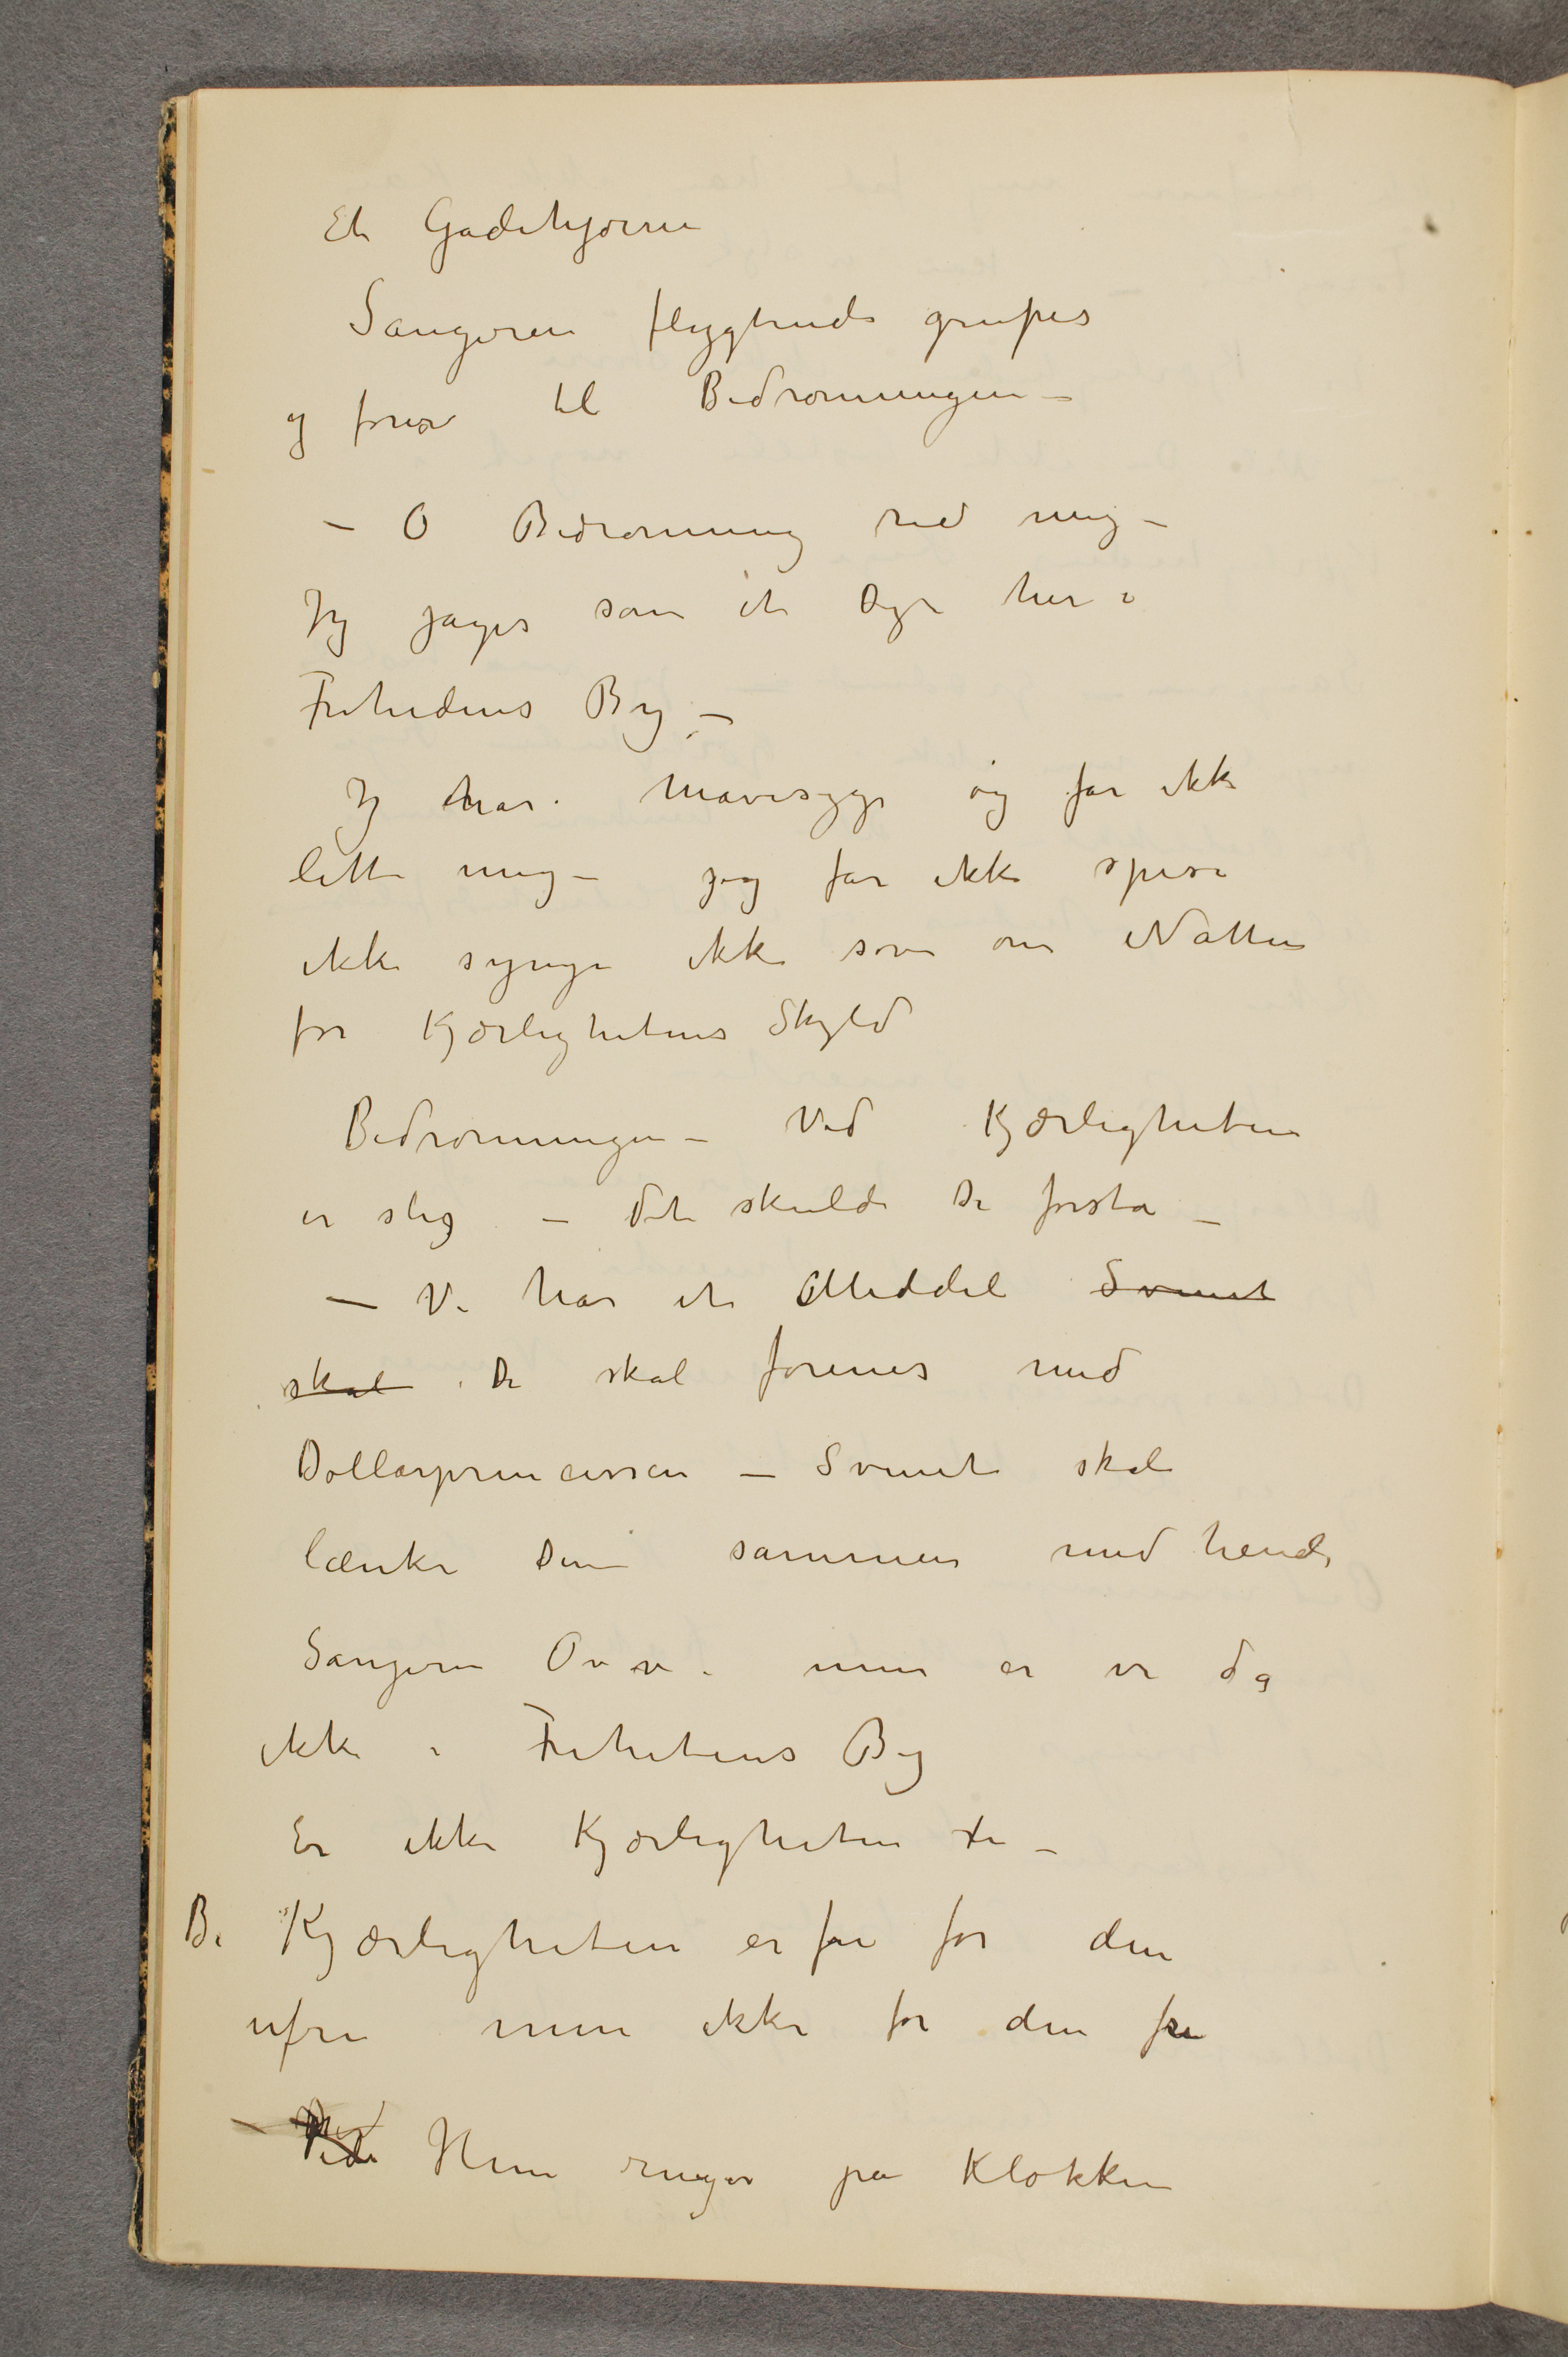 Et Gadehjørne
Sangeren flygtende gripes
og føres til Bidronningen –
– O Bidronning red mig –
Jeg jages som et Dyr her i
Frihedens By –
Jeg har Mavesyge og får ikke
lette mig – jeg får ikke spise
ikke synge ikke sove om Natten
for Kjærlighetens Skyld
Bidronningen – Ved Kjærligheten
er slig – det skulde De forstå –
– Vi har et Middel Svinet
skal De skal forenes med
Dollarprincessen – Svinet skal
lænke Dem sammen med hende
Sangeren Ov v. men er vi da
ikke i Frihetens By
Er ikke Kjærligheten fri –
Bi Kjærligheten er fri for den
ufri men ikke for den fri
– Hun ringer på Klokken